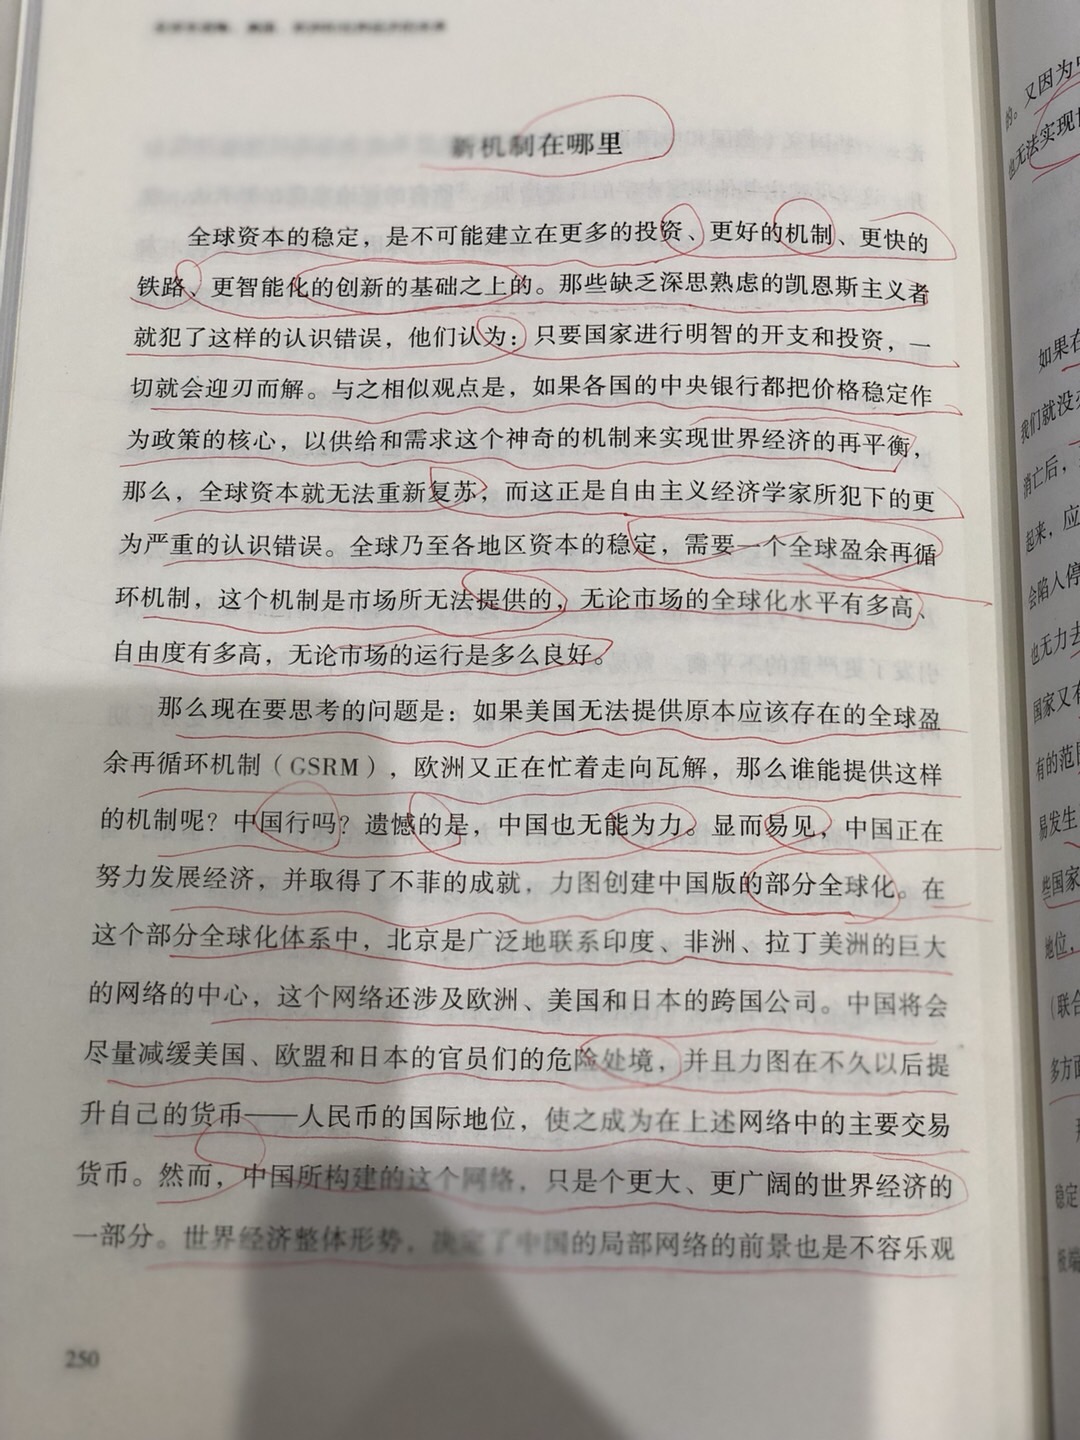 新机制在哪里
全球资本的稳定，是不可能建立在更多的投资、更好的机制、更快的
铁路、更智能化的创新的基础之上的。那些缺乏深思熟虑的凯恩斯主义者
就犯了这样的认识错误，他们认为：只要国家进行明智的开支和投资，一
切就会迎刃而解。与之相似观点是，如果各国的中央银行都把价格稳定作
为政策的核心，以供给和需求这个神奇的机制来实现世界经济的再平衡，
那么，全球资本就无法重新复苏，而这正是自由主义经济学家所犯下的更
为严重的认识错误。全球乃至各地区资本的稳定，需要一个全球盈余再循
环机制，这个机制是市场所无法提供的，无论市场的全球化水平有多高、
自由度有多高，无论市场的运行是多么良好。
那么现在要思考的问题是：如果美国无法提供原本应该存在的全球盈
余再循环机制（GSRM），欧洲又正在忙着走向瓦解，那么谁能提供这样
的机制呢？中国行吗？遗憾的是，中国也无能为力。显而易见，中国正在
努力发展经济，并取得了不菲的成就，力图创建中国版的部分全球化。在
这个部分全球化体系中，北京是广泛地联系印度、非洲、拉丁美洲的巨大
的网络的中心，这个网络还涉及欧洲、美国和日本的跨国公司。中国将会
尽量减缓美国、欧盟和日本的官员们的危险处境，并且力图在不久以后提
升自己的货币——人民币的国际地位，使之成为在上述网络中的主要交易
货币。然而，中国所构建的这个网络，只是个更大、更广阔的世界经济的
一部分。世界经济整体形势，决定了中国的局部网络的前景也是不容乐观
250
的。又因为
也无法实现
如果在
我们就没
消亡后，
起来，应
会陷入停
也无力去
国家又有
有的范围
易发生
些国家
地位，
（联合
多方面
稳定